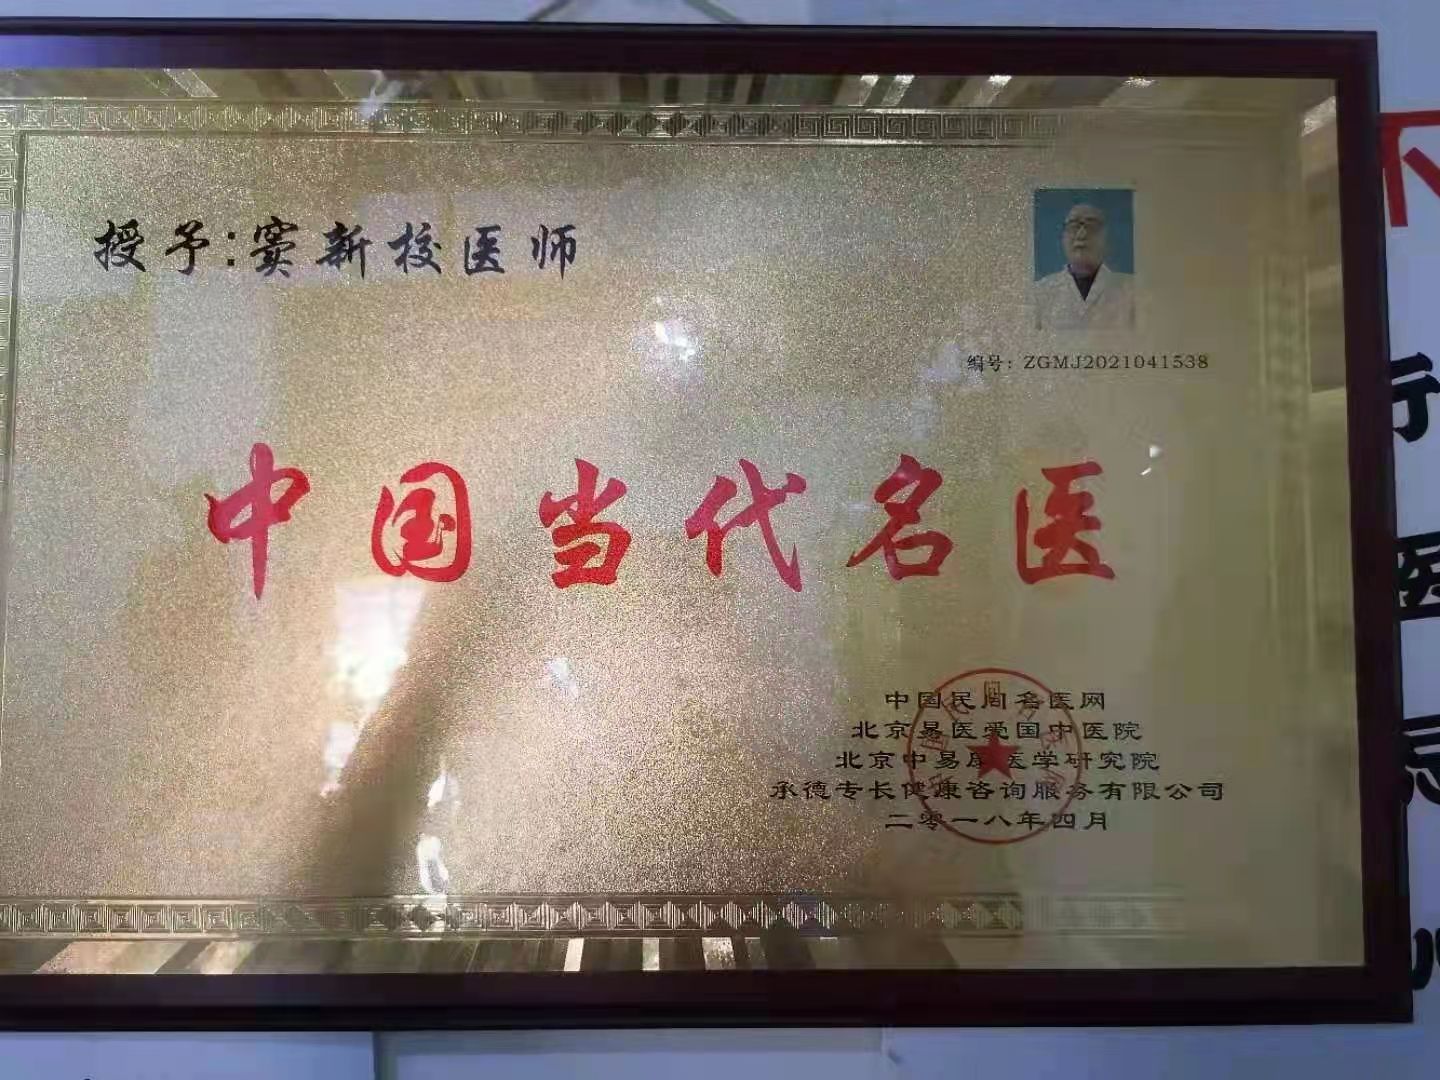 授予:窦新校医师
编号: ZGMJ2021041538
中国当代名医
中国民间名医网
北京易医爱国中医院
北京中易康医学研究院
承德专长健康咨询服务有限公司
二零一八年四月
行
医